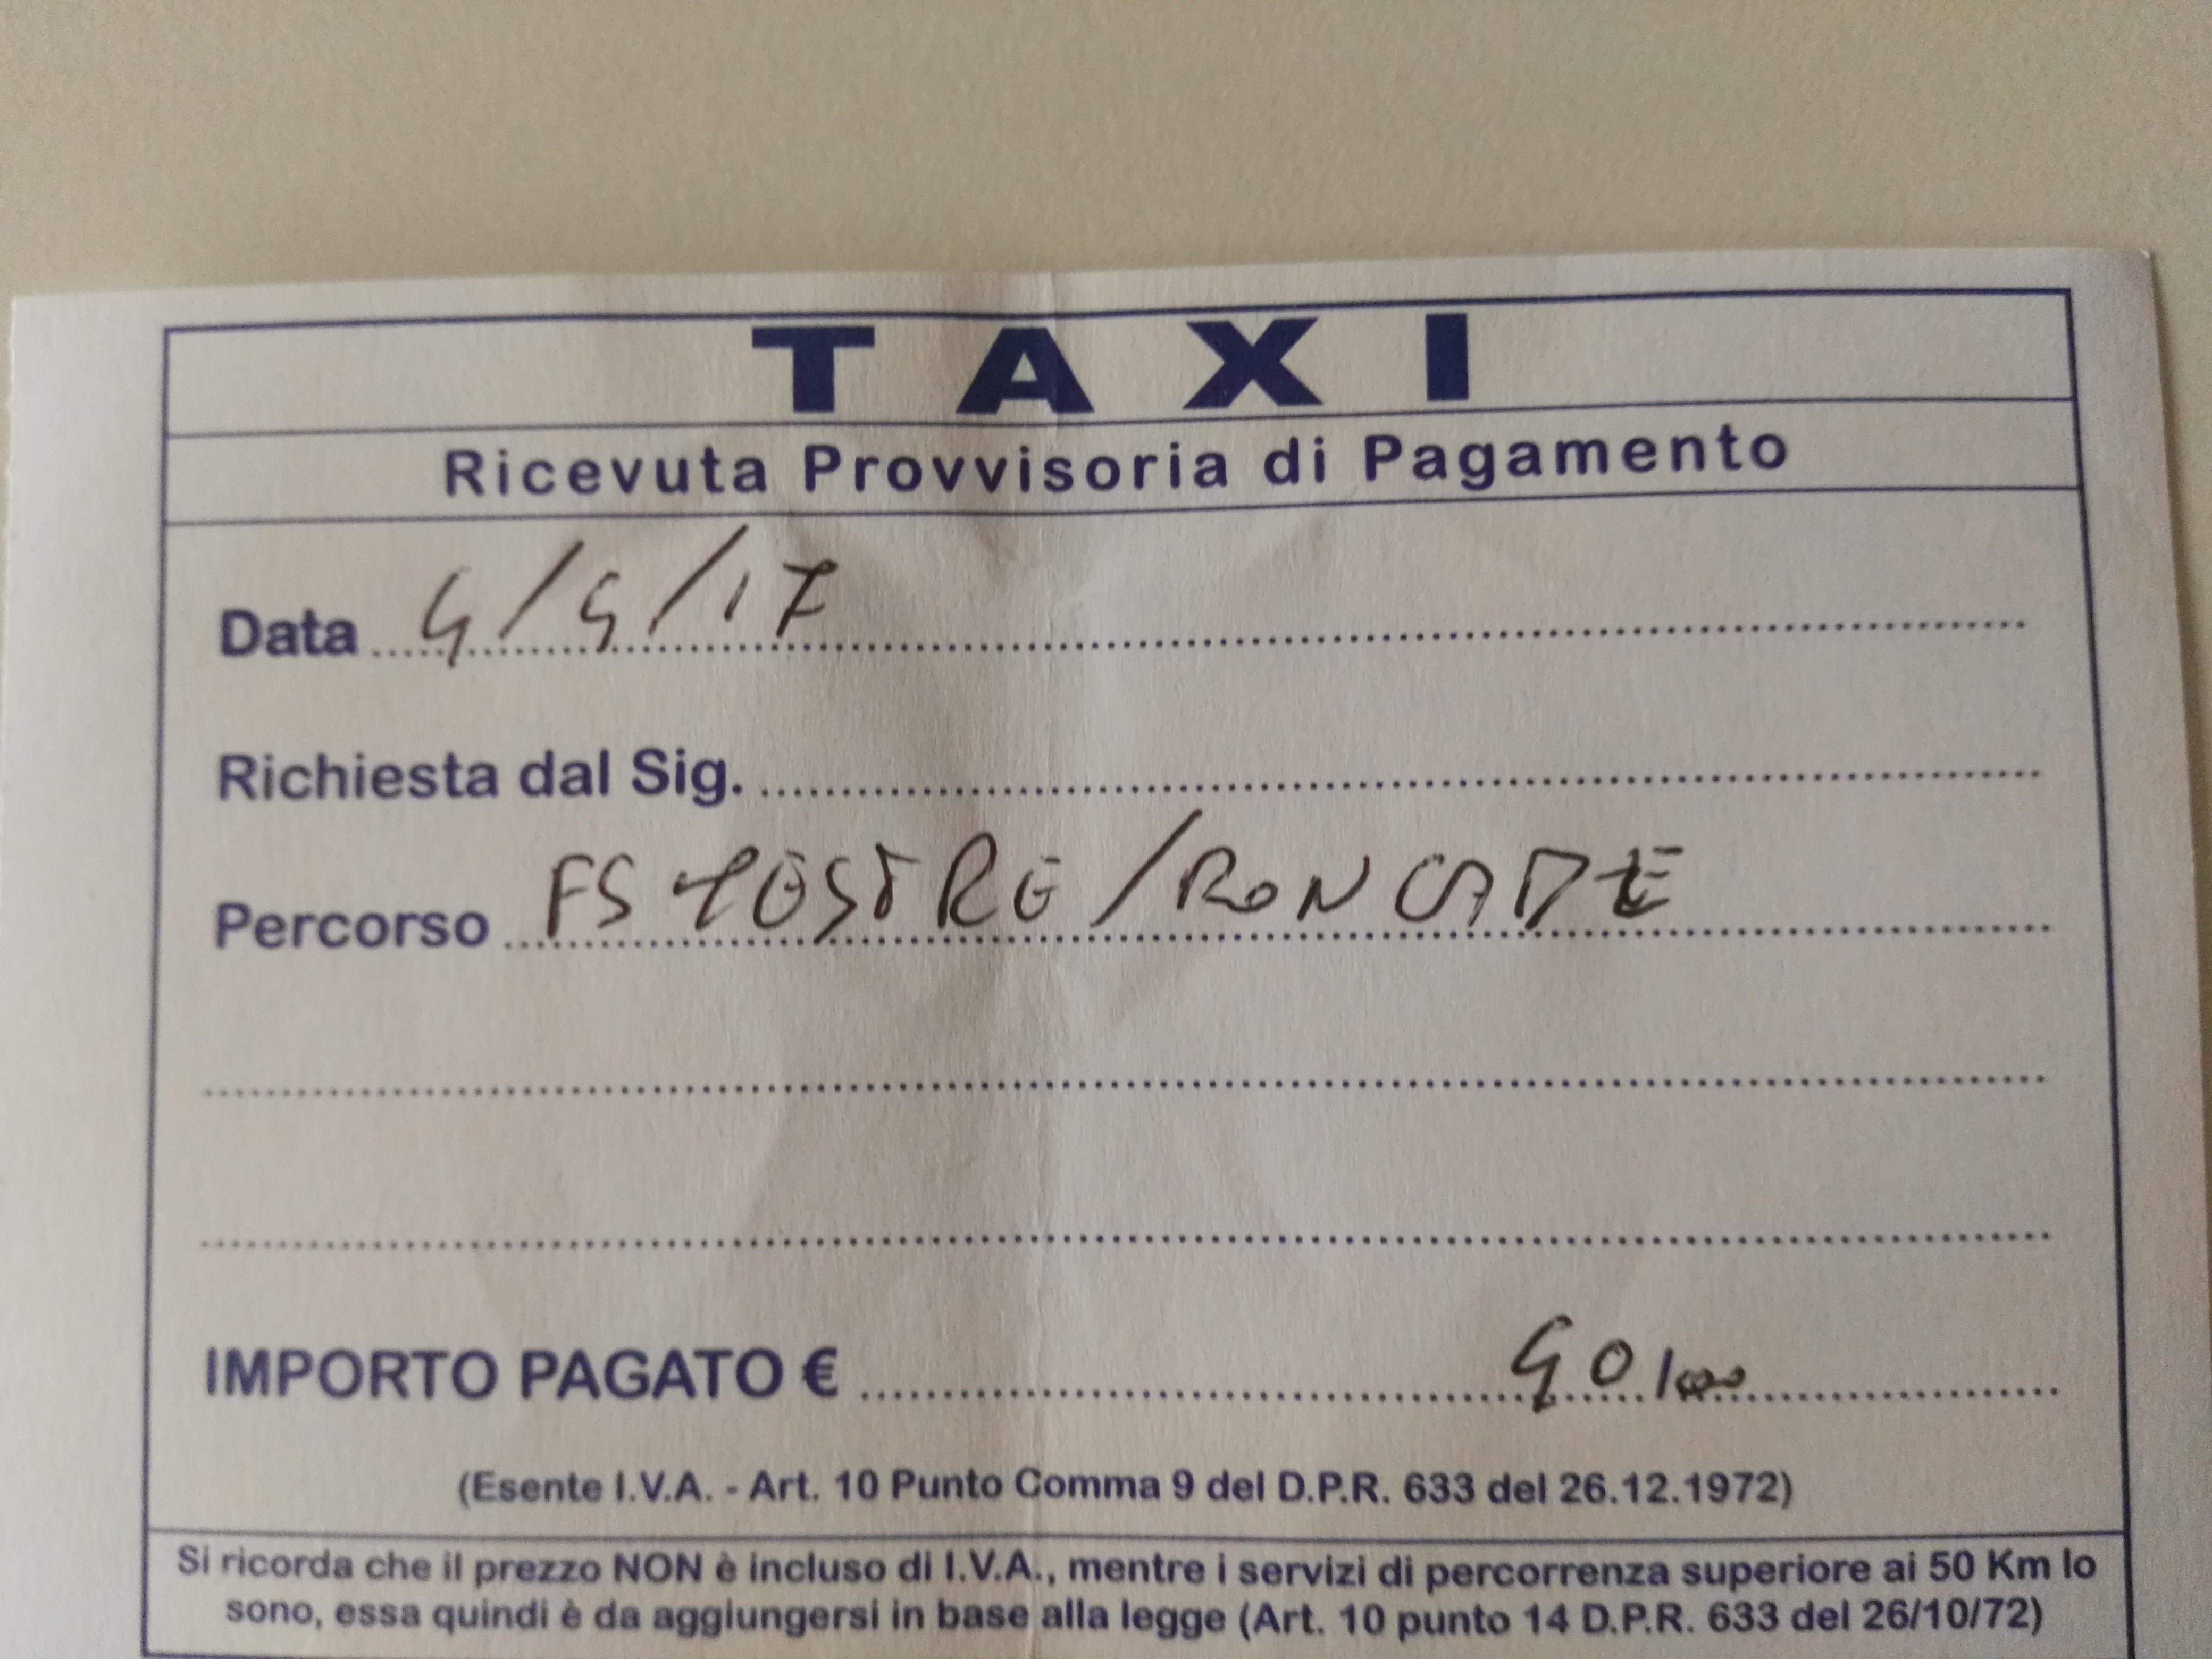 TAXI
Ricevuta Provvisoria di Pagamento
Data 4/4/17
Richiesta dal Sig.
Percorso FS MESTRE/RONCADE
IMPORTO PAGATO € 40,00
(Esente I.V.A. - Art. 10 Punto Comma 9 del D.P.R. 633 del 26.12.1972)
Si ricorda che il prezzo NON è incluso di I.V.A., mentre i servizi di percorrenza superiore ai 50 Km lo
sono, essa quindi è da aggiungersi in base alla legge (Art. 10 punto 14 D.P.R. 633 del 26/10/72)